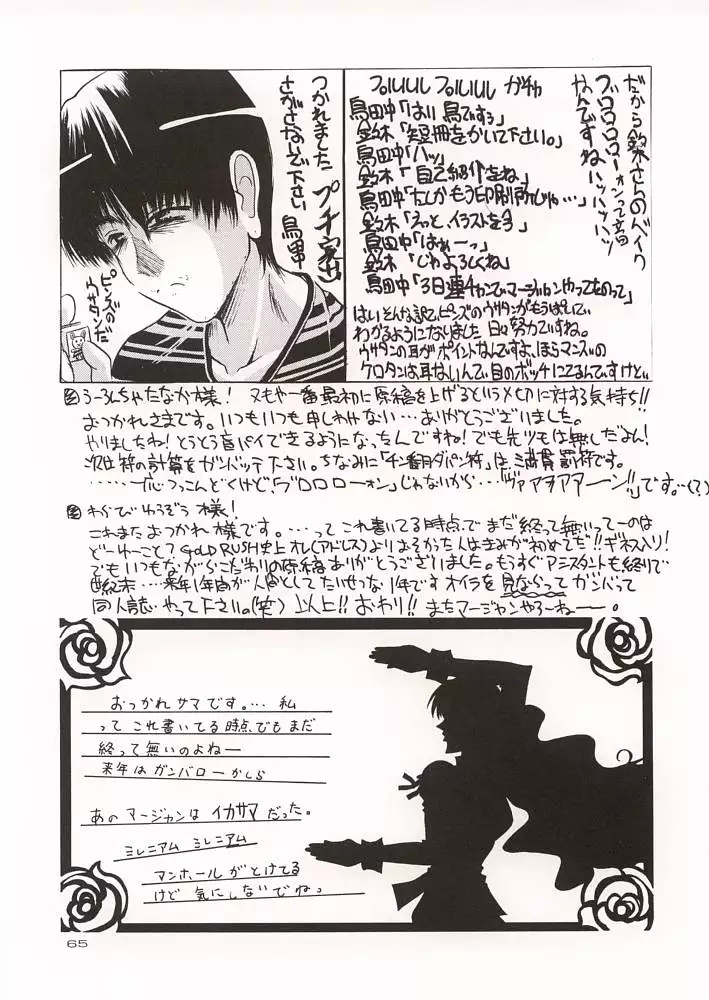 だから鈴木さんのバイク
ブロロロロォーンって音
なんですねハッハッハッ
プルルルル プルルルル ガチャ
鳥田中「はい 鳥ですぅ」
鈴木「短冊をかいて下さい。」
鳥田中「ハッ」
鈴木「自己紹介をね」
鳥田中「たしかもう印刷所じゃ…」
鈴木「えっと、イラストを今」
鳥田中「はぁーっ」
鈴木「じゃよろしくね」
鳥田中「3日連チャンでマージャンやってものって」
はいそんな訳でピンズのウサタンがもうぱいして
わかるようになりました 日々努力ですね。
ウサタンの耳がポイントなんですよ、ほらマンズの
ケロタンは耳ないんで目のボッチにてるんですけど…
つかれました プチ家出
さがさないで下さい 鳥田中
ピンズの
ウサタンだ
うーろんちゃたなか様!又もや一番最初に原稿を上げるというメ切に対する気持ち!!
おつかれさまです。いつもいつも申しわけない…ありがとうございました。
やりましたね!とうとう盲パイできるようになったんですね!でも先ヅモは無しだよん!
次は符の計算をガンバッテ下さい。ちなみに「チン
は、満貫
です。
じゃないから…「ヴァアヲアアーン!!」です。…(?)
わかびゆうぞう様!
これまたおつかれ様です。…って これ書いてる時点で まだ終って無いってーのは
どーゆーこと? GOLD RUSH史上オレ(アドレス)よりおそかった人はきみが初めてだ!!ギネス入り!
でもいつもながらこだわりの原稿ありがとうございました。もうすぐアシスタントも終りで
世紀末…来年1年間が人間としてたいせつな1年です オイラを見ならってガンバって
同人誌やって下さい。(笑) 以上!! おわり!! またマージャンやろーねー。
おっかれサマです。… 私
って これ書いてる時点でもまだ
終って無いのよねー
来年はガンバローかしら
あのマージャンは イカサマ だった。
ミレニアム ミレニアム
マンホールがとけてる
けど 気にしないでねっ
65